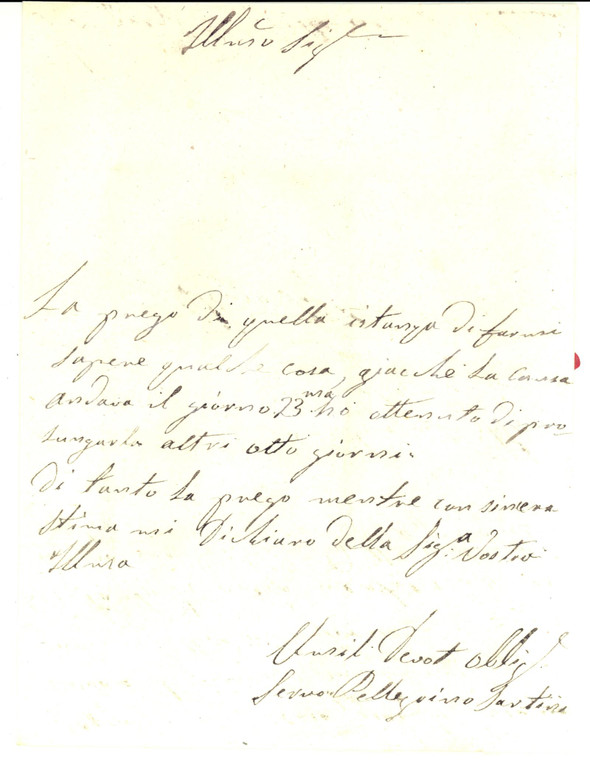 Illmo Sigr
La prego di quella istanza di farmi
sapere qualche cosa, giacche la causa
andava il giorno 23 ma ho ottenuto di pro-
lungarla altri otto giorni.
Di tanto la prego mentre con sincera
stima mi dichiaro della Sig.a Vostra
Illma
Umil. Devot Obblig
Servo Pellegrino